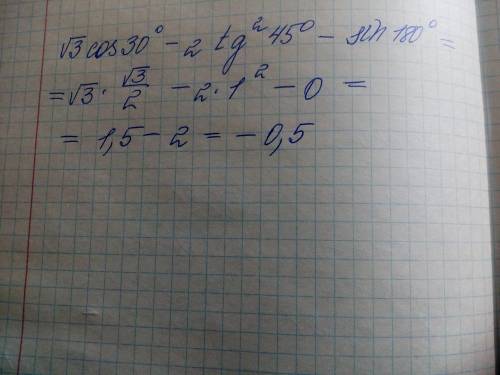 √3 cos 30° - 2 tg² 45° - sin 180° =
= √3 · √3/2 - 2 · 1² - 0 =
= 1,5 - 2 = - 0,5